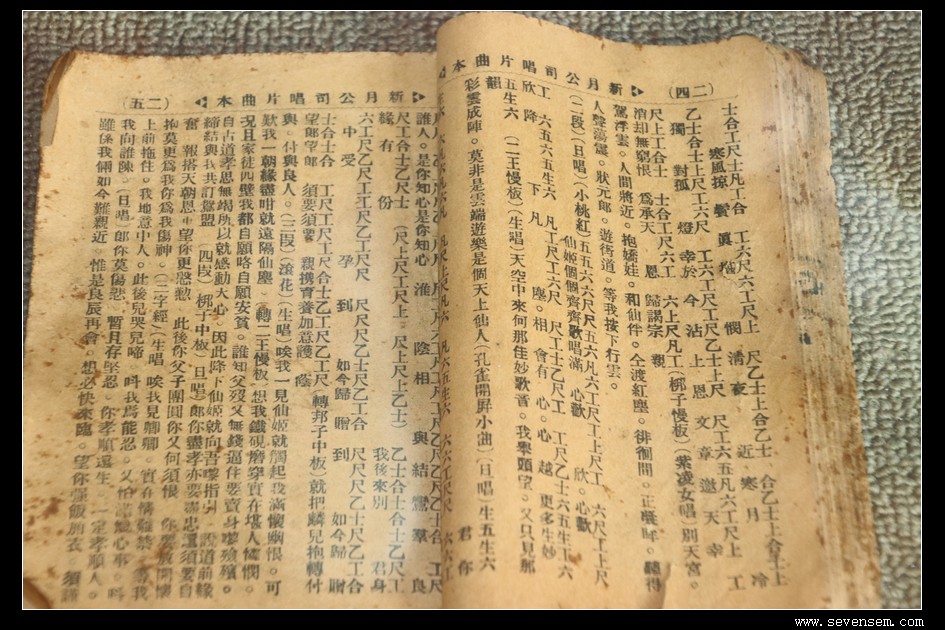 (二四) 新月公司唱片曲本
士合工尺士凡工合 工六尺六工尺上 尺乙士上合乙士 合乙士上合工上
寒風掠鬢 憫清夜 近寒月冷
乙士合士上尺工六尺 工六工尺工尺乙士上尺 尺工六五凡六工尺上 工
獨對孤燈 幸於今沾上恩 文章邀天幸
尺上工合士 士合工尺六工 六上尺凡工(梆子慢板)(紫凌女唱)別天宮。
消却無窮恨 爲承天恩 歸謁宗親
駕浮雲。人間將近。抱嬌娃。和仙伴。仝渡紅塵。徘徊間。正 聽得
人聲蕩漾。狀元郎。遊街道。等我按下行雲。
(二段)(旦唱)(小桃紅)五五六六尺尺五六凡六工尺工上尺工 六尺工上上尺
仙姬個個齊齊歌唱滿心歡 欣。心歡
工 六五六五生六 凡工尺工六尺 工尺士工乙尺工 工尺乙士六五生工六
欣 降下凡 塵。相會有心。心越更多生妙
五生六 (二王慢板)(生唱)天空中來何那佳妙歌音。我舉頭望。又只見那
韻
彩雲成陣。莫非是雲端遊樂是個天上仙人(孔雀開屛小曲)(旦唱)生五生六
新月公司唱片曲本 (二五)
誰人。是你知心是你知心 淮陰相與結鸞羣 良
尺工合士乙尺士 (尺上尺工尺上。尺上尺上乙士) 乙士合士合士乙尺工
緣有份 我後來別君身
六工尺乙尺工工尺乙工尺尺 尺尺尺乙士尺乙工合 尺尺尺乙士尺乙工合
中受孕 到如今歸贈 到如今歸贈
士合士合 工尺工尺工合士乙工尺乙工尺(轉邦子中板)就把麟兒抱轉付
望郎望郎 須要須要親携育養加意護蔭
與。付與良人。(三段)(滾花)(生唱)唉我一見仙姬就觸起我滿懷幽恨。可
歎我一朝緣盡咁就遠隔仙塵 (轉二王慢板)想我鐵硯磨穿實在堪人憐憫。
況且家徒四壁我都自願咯自願安貧。誰知父歿又無錢逼住要賣身嚟殮殯。
自古道孝思無竭所以就感動天心。因此降下仙姬就向吾嚟指引。說道前緣
締結與我共訂鴛盟 (四段)(梆子中板)(旦唱)郎你盡孝亦要盡忠還須要自
奮 報搭天朝恩。望你更慇懃 此後你父子團圓你又何須恨 你要放開懷
抱莫更爲我你爲我傷神。(二字經)(生唱)唉我見卿卿 實在情難禁。等我
上前拖住。我地意中人。此後兒哭兒啼 咁我爲能忍。又怕
我向誰陳。(旦唱)郎你莫傷悲。暫且存堅忍。你孝順還生。一定孝順人。
雖係我倆如今難親近 惟是良辰再會。想必快來臨。望你強飯加衣。須謹
www.sevensem.com